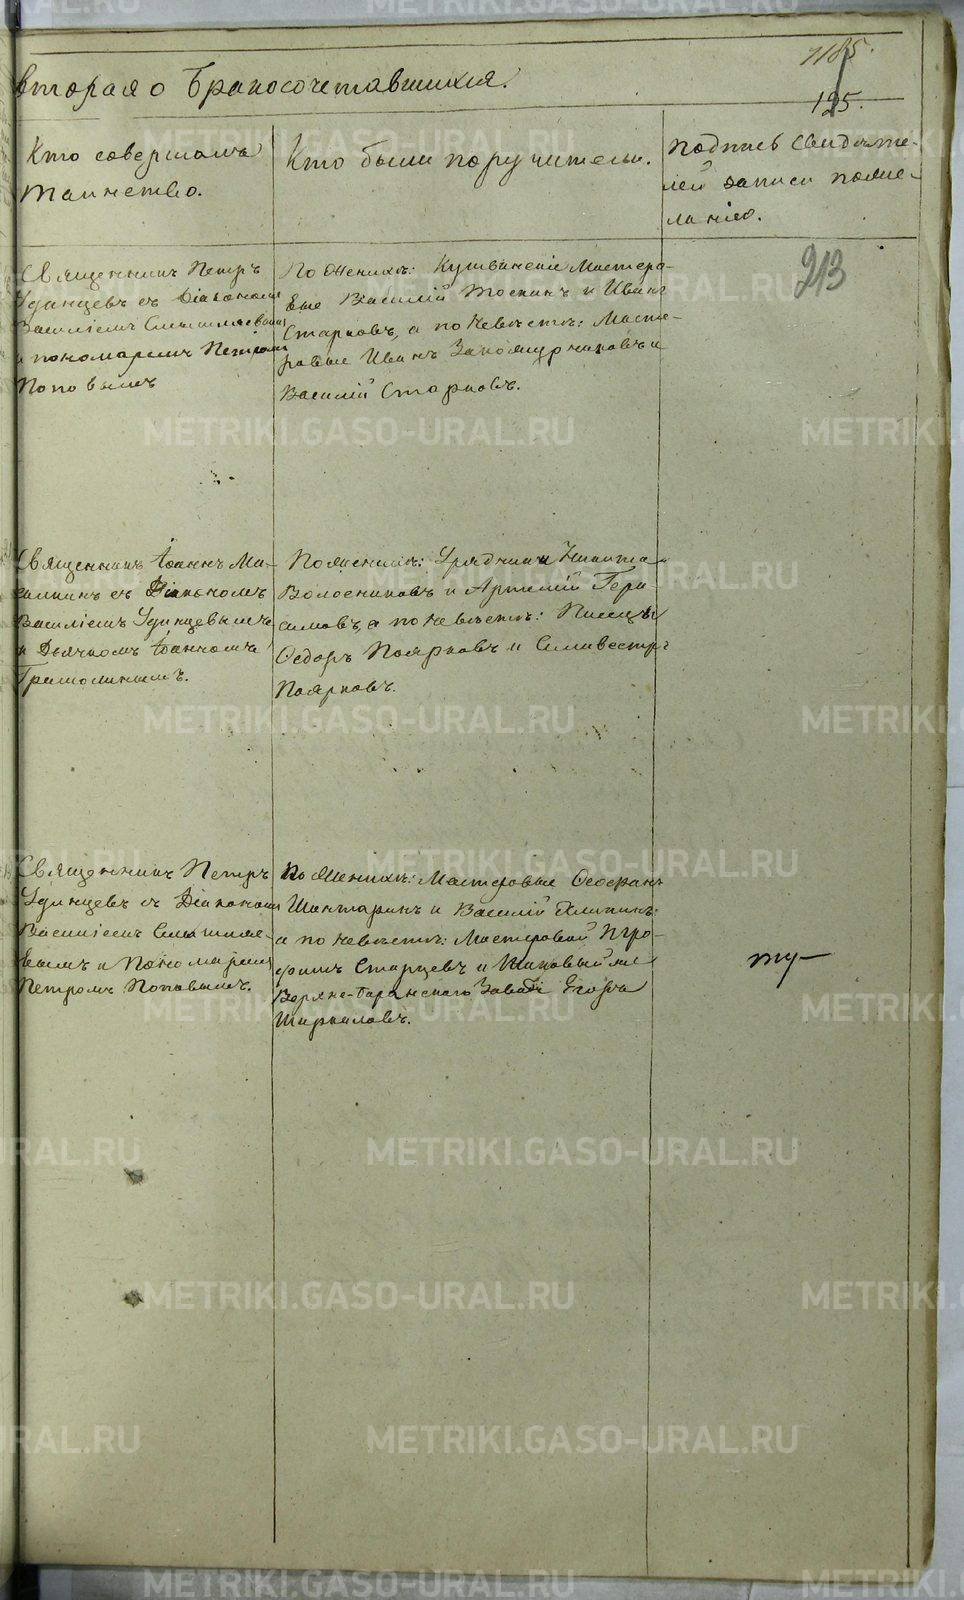 1185.
125.
вторая о бракосочетавшихся.
Кто совершалъ
таинство.
Кто были поручители.
подпись свидѣте-
лей записи по жее-
ланію.
213
Священникъ Петръ
Удинцевъ съ Діакономъ
Василіемъ Смышляевымъ
и пономаремъ Петромъ
Поповымъ
По женихѣ: Кушвинскіе Мастеро-
вые Василій и Иванъ
Старковъ, а по невѣстѣ: Масте-
ровые Иванъ и
Василій Старковъ.
Священникъ Іоаннъ Ма-
съ Діакономъ
Василіемъ Удинцевымъ
и Дьячкомъ Іоанномъ
Грамолинымъ.
По женихѣ: Урядники Никита
Волосниковъ и Артемій Гера-
симовъ, а по невѣстѣ: Писецъ
Ѳедоръ Поярковъ и Селивестръ
Поярковъ.
Священникъ Петръ
Удинцевъ съ Діакономъ
Василіемъ Смышляе-
вымъ и Пономаремъ
Петромъ Поповымъ.
По женихѣ: Мастеровые
Шантаринъ и Василій
а по невѣстѣ: Мастеровой Тро-
фимъ Старцевъ и
Верхне-Баранскаго Завода Егоръ
METRIKI.GASO-URAL.RU